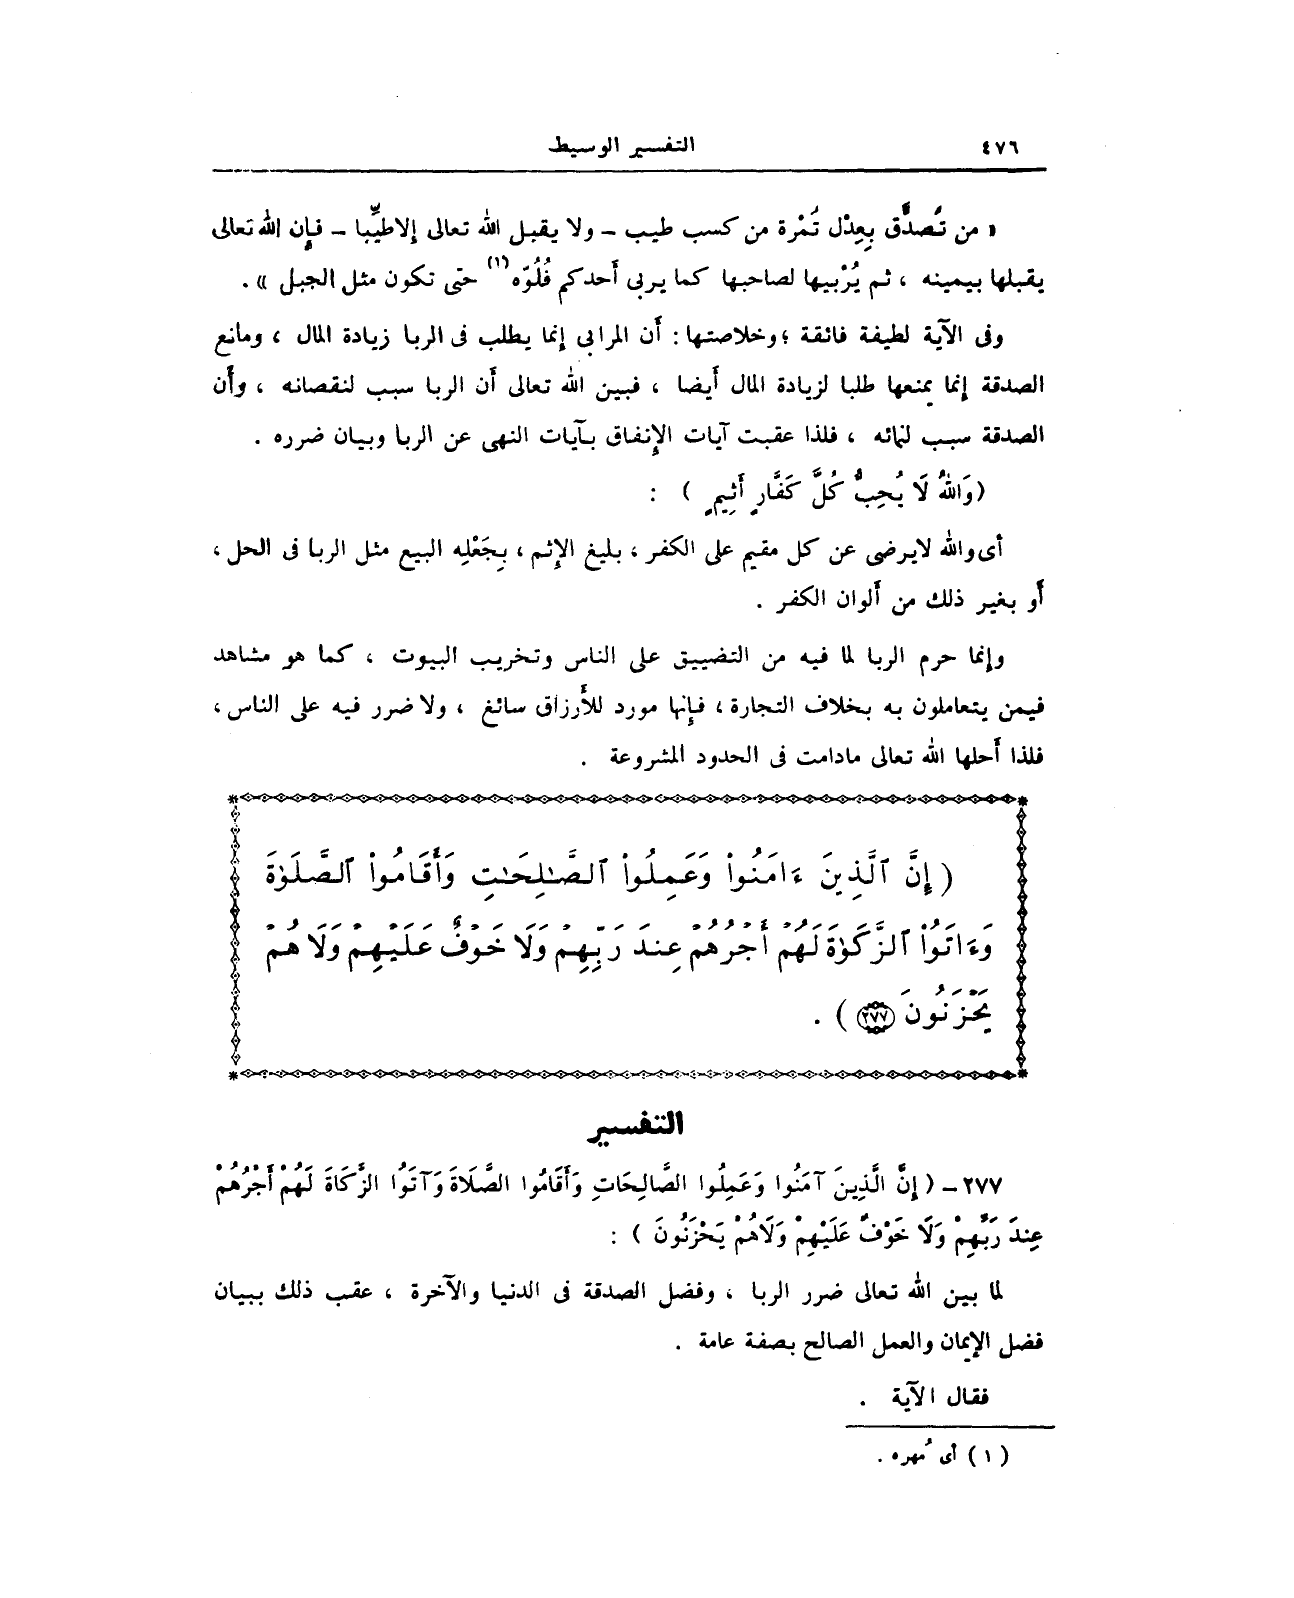 ٤٧٦
التفسير الوسيط
« من تَصَدَّق بِعِدْل تَمْرة من كسب طيب – ولا يقبل الله تعالى إلا طيِّبا – فإن الله تعالى
يقبلها بيمينه ، ثم يُرْبيها لصاحبها كما يربى أحدكم فُلُوّه (١) حتى تكون مثل الجبل » .
وفى الآية لطيفة فائقة ؛ وخلاصتها : أن المرابى إنما يطلب فى الربا زيادة المال ، ومانع
الصدقة إنما يمنعها طلبا لزيادة المال أيضا ، فبين الله تعالى أن الربا سبب لنقصانه ، وأن
الصدقة سبب لنمائه ، فلذا عقبت آيات الإنفاق بآيات النهى عن الربا وبيان ضرره .
(وَاللهُ لَا يُحِبُّ كُلَّ كَفَّارٍ أَثِيمٍ ) :
أى والله لايرضى عن كل مقيم على الكفر ، بليغ الإثم ، بِجَعْلِه البيع مثل الربا فى الحل ،
أو بغير ذلك من ألوان الكفر .
وإنما حرم الربا لما فيه من التضييق على الناس وتخريب البيوت ، كما هو مشاهد
فيمن يتعاملون به بخلاف التجارة ، فإنها مورد للأرزاق سائغ ، ولا ضرر فيه على الناس ،
فلذا أحلها الله تعالى مادامت فى الحدود المشروعة .
( إِنَّ ٱلَّذِينَ ءَامَنُواْ وَعَمِلُواْ ٱلصَّـٰلِحَـٰتِ وَأَقَامُواْ ٱلصَّلَوٰةَ
وَءَاتَوُاْ ٱلزَّكَوٰةَ لَهُمْ أَجْرُهُمْ عِندَ رَبِّهِمْ وَلَا خَوْفٌ عَلَيْهِمْ وَلَا هُمْ
يَحْزَنُونَ ٢٧٧ ) .
التفسير
٢٧٧ – ( إِنَّ الَّذِينَ آمَنُوا وَعَمِلُوا الصَّالِحَاتِ وَأَقَامُوا الصَّلَاةَ وَآتَوُا الزَّكَاةَ لَهُمْ أَجْرُهُمْ
عِندَ رَبِّهِمْ وَلَا خَوْفٌ عَلَيْهِمْ وَلَاهُمْ يَحْزَنُونَ ) :
لما بين الله تعالى ضرر الربا ، وفضل الصدقة فى الدنيا والآخرة ، عقب ذلك ببيان
فضل الإيمان والعمل الصالح بصفة عامة .
فقال الآية .
( ١ ) أى مُهره .